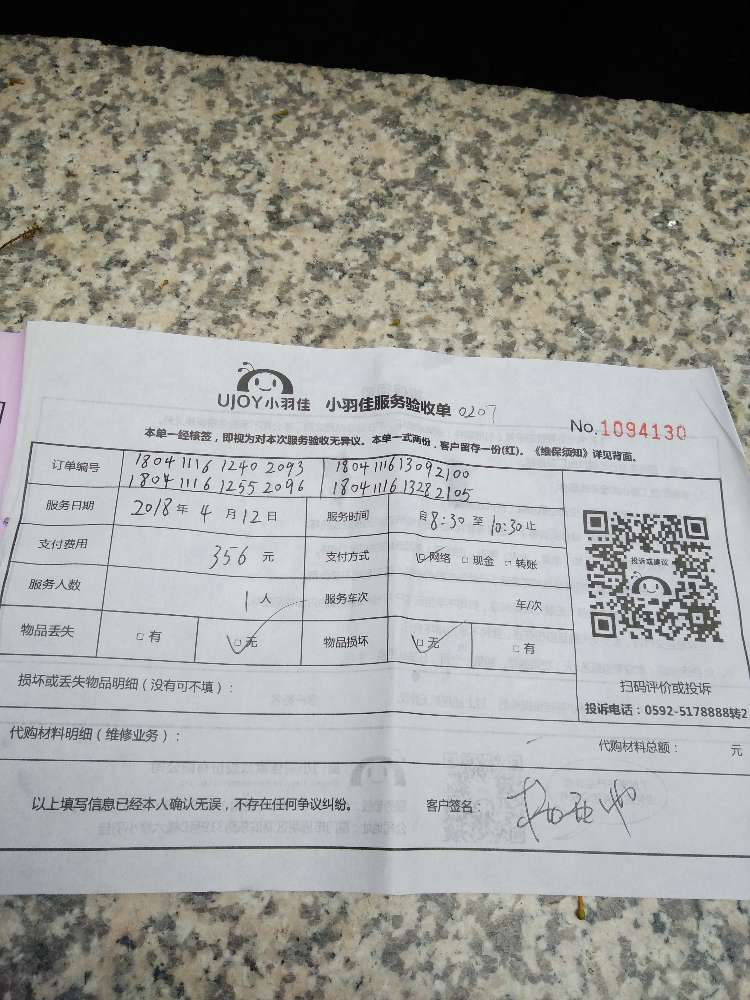 UJOY小羽佳 小羽佳服务验收单 0207
No.1094130
本单一经核签，即视为对本次服务验收无异议。本单一式两份，客户留存一份(红)。《维保须知》详见背面。
订单编号 18041116 1240 2093 1804111613092100
18041116 1255 2096 1804111613282105
服务日期 2018年 4月12日 服务时间 自8:30至10:30止
支付费用 356元 支付方式 ☑网络 □现金 □转账
服务人数 1人 服务车次 车/次
物品丢失 □有 ☑无 物品损坏 ☑无 □有
投诉或建议
扫码评价或投诉
投诉电话：0592-5178888转2
损坏或丢失物品明细（没有可不填）：
代购材料明细（维修业务）： 代购材料总额： 元
以上填写信息已经本人确认无误，不存在任何争议纠纷。 客户签名：